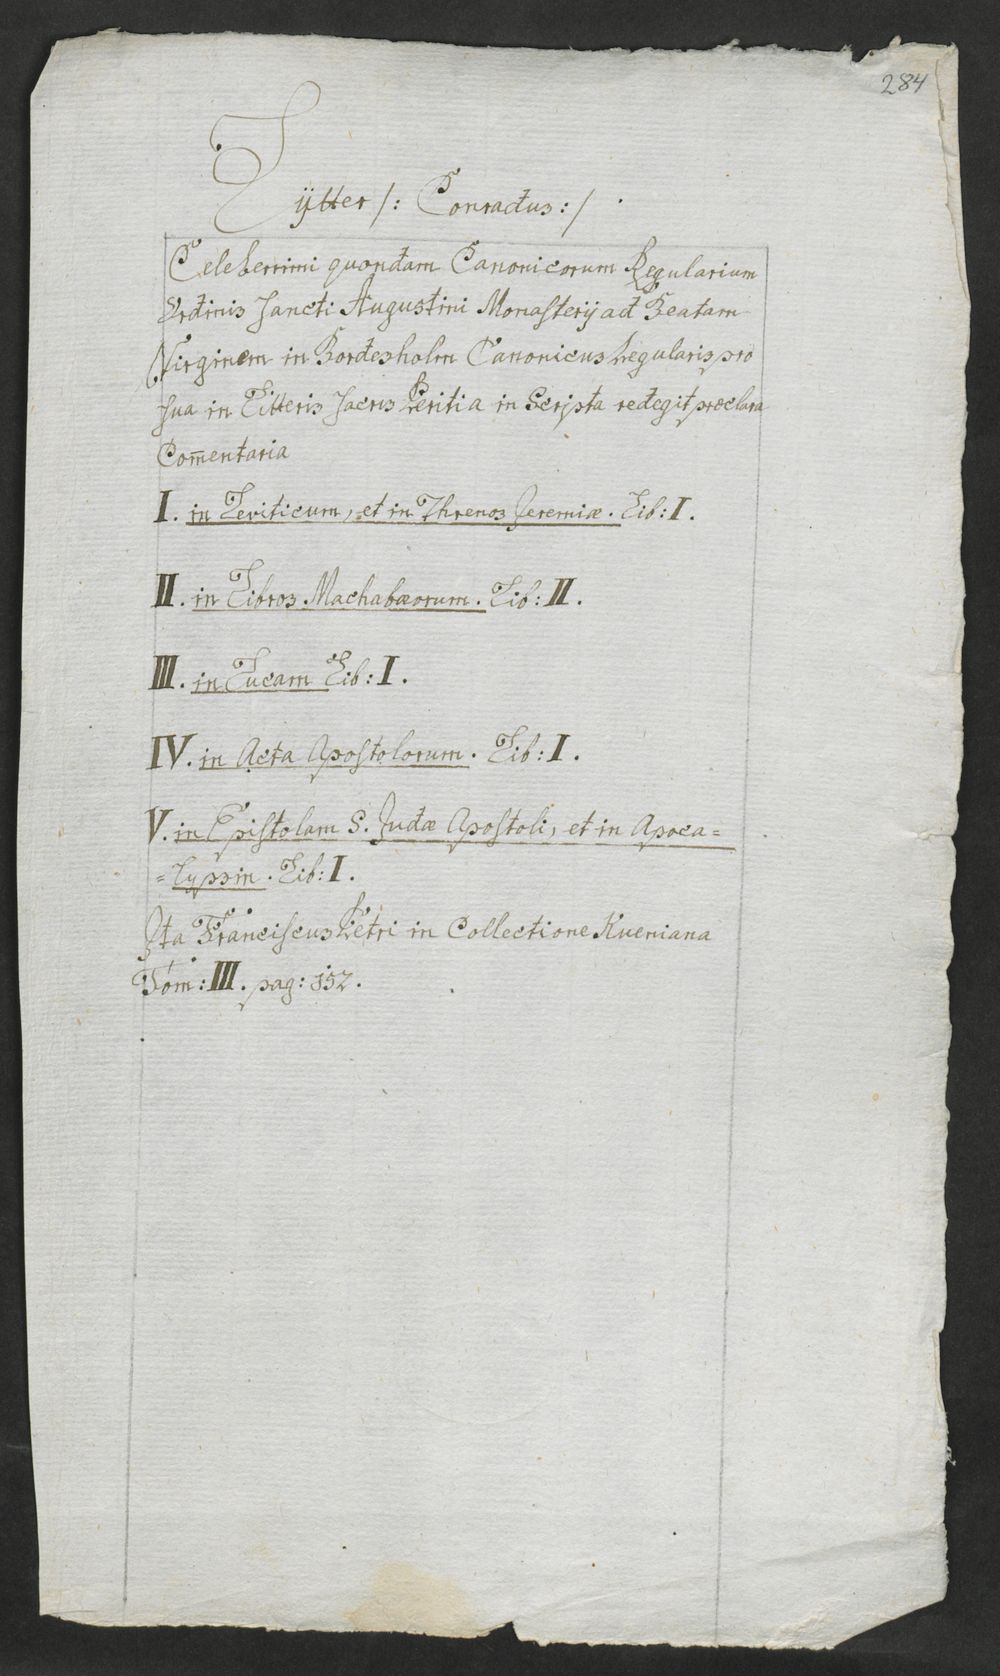 284
Lÿtter /: Conradus: /
Celeberrimi quondam Canonicorum Regularium
Ordinis Sancti Augustini Monasterij ad Beatam
Virginem in Bordesholm Canonicus Regularis pro
sua in Litteris Sacris Peritia in Scripta redegit præclara
Com̄entaria
I. in Leviticum, et in Threnos Jeremiæ. Lib: I.
II. in Libros Machabæorum. Lib: II.
III. in Lucam Lib: I.
IV. in Acta Apostolorum. Lib: I.
V. in Epistolam S. Judæ Apostoli, et in Apoca=
=lypsin. Lib: I.
Ita Franciscus Petri in Collectione Kueniana
Tom: III. pag: 152.